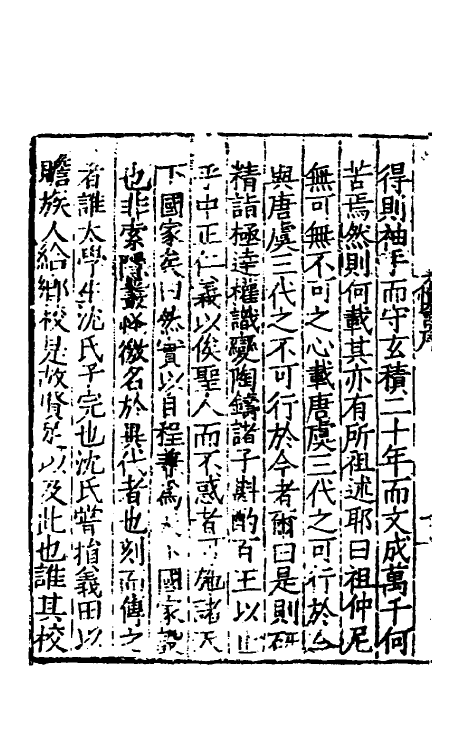 得則袖手而守玄積二十年而文成萬千何
苦焉然則何載其亦有所祖述耶曰祖仲尼
無可無不可之心載唐虞三代之可行於今
與唐虞三代之不可行於今者爾曰是則研
精詣極達權識變陶鑄諸子斟酌百王以止
乎中正仁義以俟聖人而不惑者可施諸天
下國家矣曰然實以自程業爲天下國家
也非索隱叢怪徼名於異代者也刻而傳之
者誰太學生沈氏子完也沈氏嘗捐義田以
贍族人給鄉校是故賢於以及此也誰其校